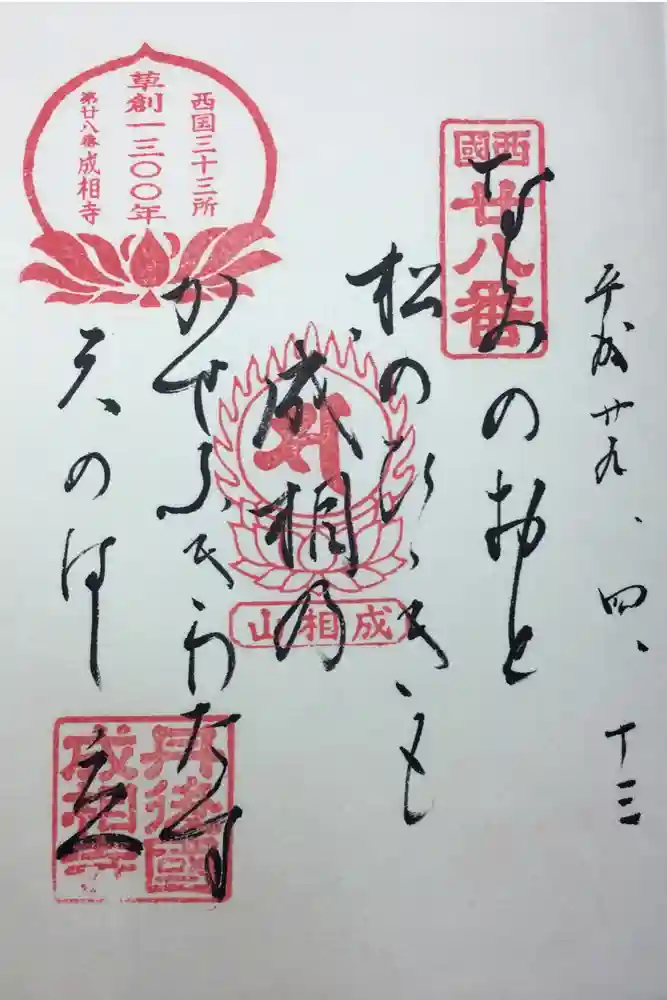 平成廿九、四、十三
西國
廿八番
なみのおと
松のひゞきも
成相乃
成相山
かぜふきわたす
天のはし立
西国三十三所
草創一三〇〇年
第廿八番 成相寺
丹後國
成相寺